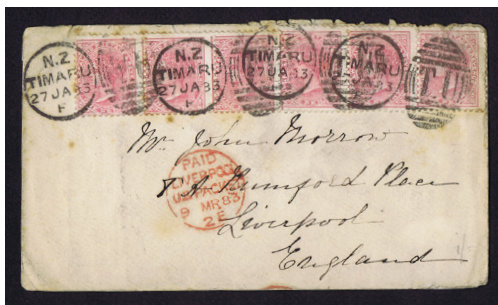 N.Z
TIMARU
27 JA 83
F
N.Z
TIMARU
27 JA 83
F
N.Z
TIMARU
27 JA 83
N.Z
TIMARU
27 JA 83
F
Mr John Morrow
Place
Liverpool
England
PAID
LIVERPOOL
US PACKET
9 MR 83
2 E